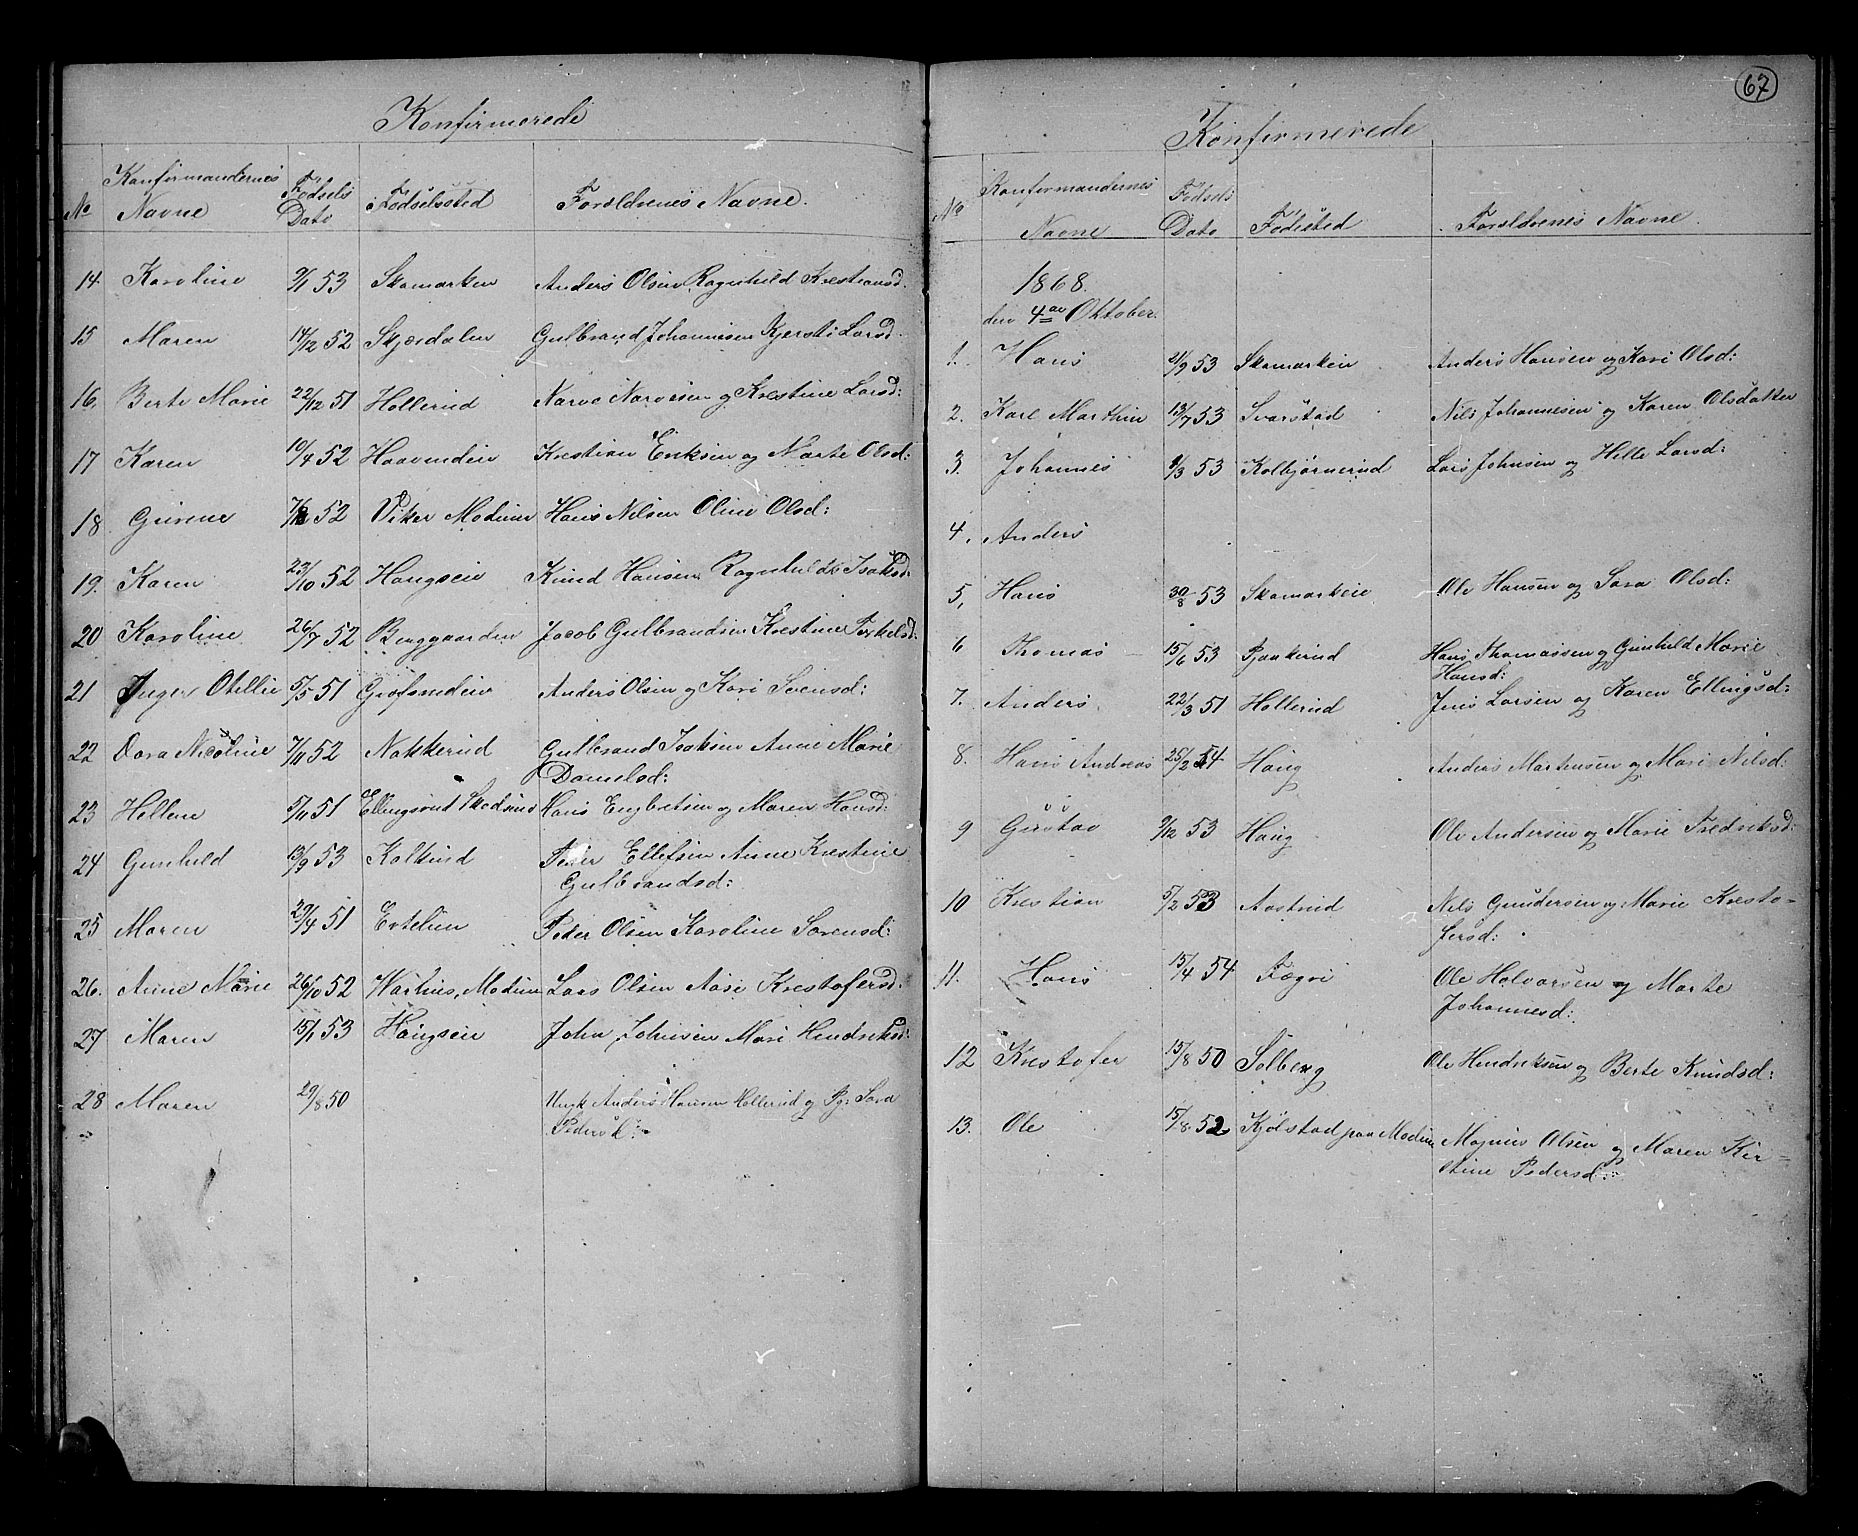 Konfirmerede
No Konfirmandernes Navne Fødsels Dato Fødselssted Forældrenes Navne.
14 Karoline 9/1 53 Skamarken Anders Olsen Ragnhild Krestiansd.
15 Maren 14/12 52 Skjærdalen Gulbrand Johannesen Kjersti Larsd.
16. Berte Marie 22/12 51 Hollerud Narve Narvesen og Krestine Larsd:
17 Karen 10/4 52 Haavinden Krestian Eriksen og Marte Olsd:
18 Gurine 52 Viker Modum Hans Nilsen Oline Olsd:
19. Karen 23/10 52 Haugseie Knud Hansen Ragnhild Isaksd:
20 Karoline 26/7 52 Borggaarden Jacob Gulbrandsen Krestine Torkelsd:
21 Inger Otellie 5/5 51 Anders Olsen og Kari Svensd:
22 Dora Nicoline 7/11 52 Nakkerud Gulbrand Isaksen Anne Marie
Danielsd:
23 Hellene 5/11 51 Hans Engbretsen og Maren Hansd:
24 Gunhild 13/9 53 Kolkind Peder Ellefsen Anne Krestine
Gulbrandsd:
25 Maren 29/4 51 Evtelien Peder Olsen Karoline Sørensd:
26. Anne Marie 26/10 52 Modum Lars Olsen Aase Krestofersd.
27 Maren 15/1 53 Haugseie John Johnsen Mari Hendriksd:
28 Maren 29/8 50 Ungk Anders Hansen Hollerud og Pg: Sara
Pedersd:
67
Konfirmerede
No Konfirmandernes Navne Fødsels Dato Fødested Forældrenes Navne.
1868.
den 4de Oktober.
1. Hans 21/9 53 Skamarken Anders Hansen og Kari Olsd:
2. Karl Marthin 13/7 53 Svarstad Nils Johannesen og Karen Olsdatter
3. Johannes 9/3 53 Kolbjørnerud Lars Johnsen og Helle Larsd:
4. Anders
5, Hans 30/8 53 Skamarkeie Ole Hansen og Sara Olsd:
6 Thomas 15/6 53 Pjaakerud Hans Thomassen og Gunhild Marie
Hansd:
7. Anders 22/3 51 Hollerud Jens Larsen og Karen Ellingsd:
8. Hans Andreas 25/2 54 Haug Anders Martensen og Mari Nilsd:
9 Gustav 9/12 53 Haug Ole Andersen og Marie Fredriksd:
10 Krestian 5/2 53 Aastrud Nils Gundersen og Marie Kresto-
fersd:
11. Hans 15/4 54 Fægri Ole Halvorsen og Marte
Johannesd:
12 Krestofer 15/8 50 Solberg Ole Hendriksen og Berte Knudsd:
13. Ole 15/8 52 Kjølstad paa Modum Magnus Olsen og Maren Kir=
stine Pedersd: